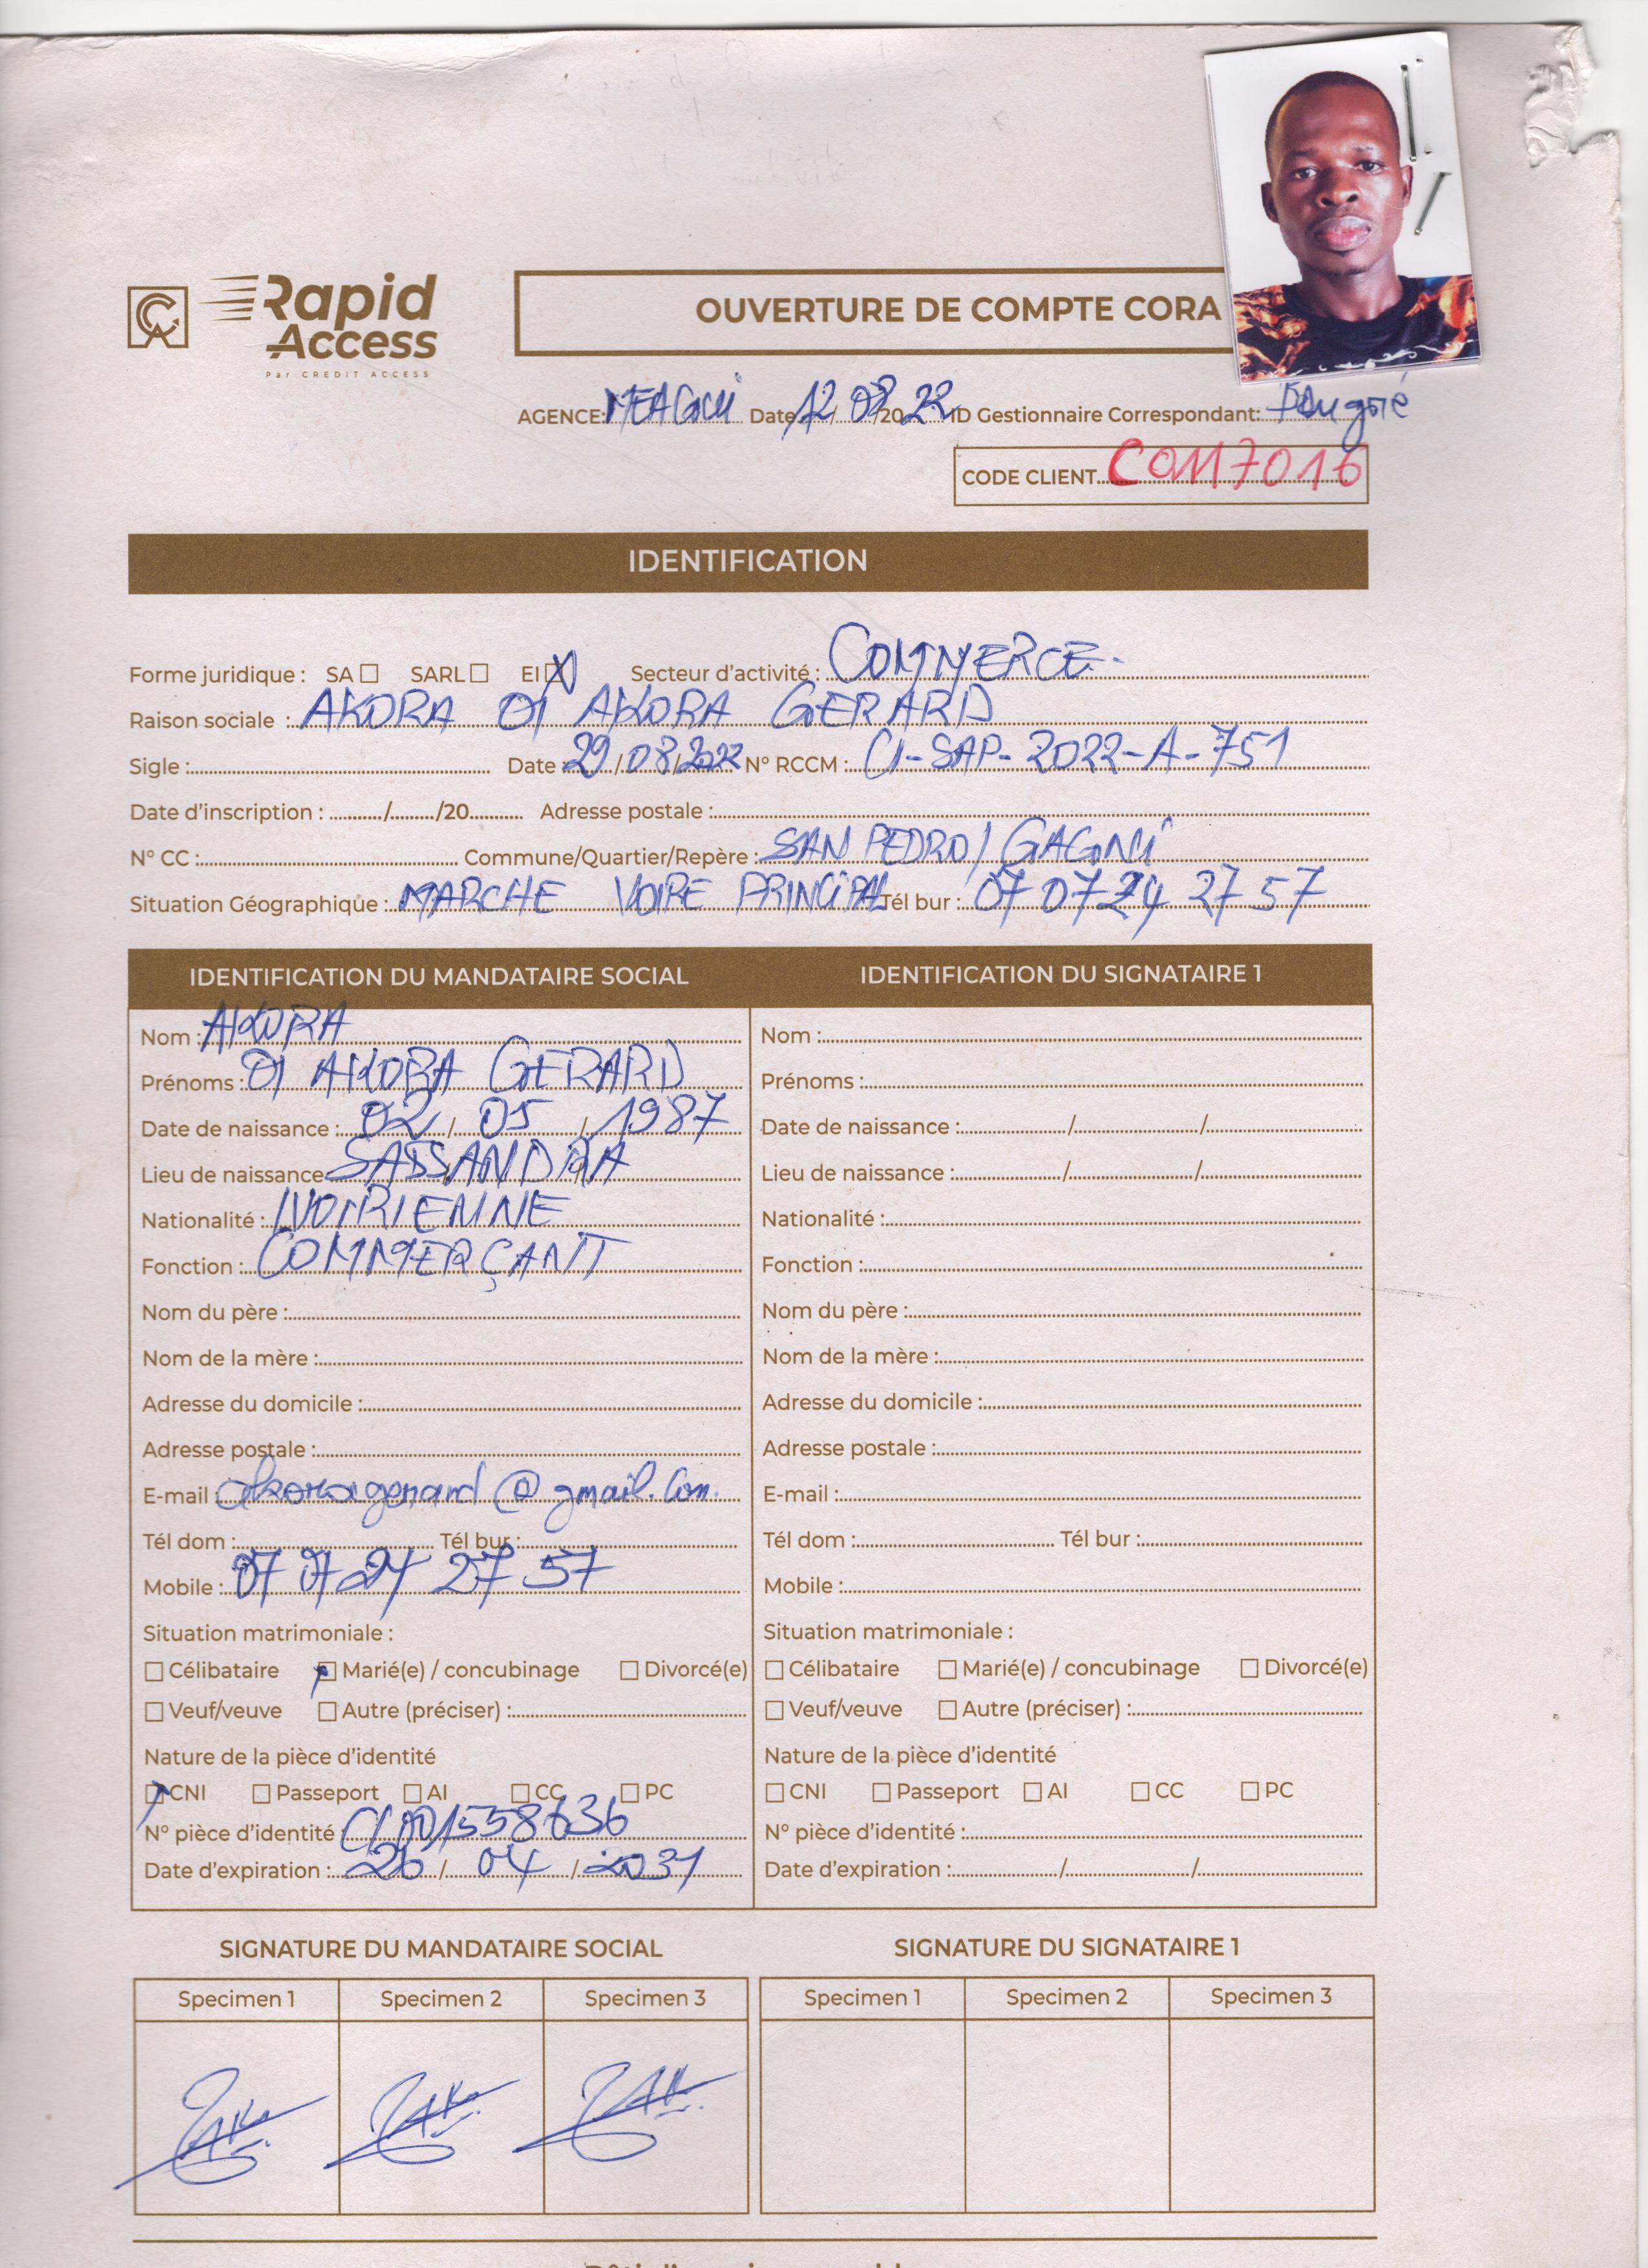 Rapid
Access
Par CREDIT ACCESS
OUVERTURE DE COMPTE CORA
AGENCE: MEAGUI Date 12/08/2022 ID Gestionnaire Correspondant:
CODE CLIENT C0117016
IDENTIFICATION
Forme juridique : SA SARL EI X Secteur d'activité : COMMERCE
Raison sociale : AKORA OI AKORA GERARD
Sigle : Date 29/08/2022 N° RCCM : CI-SAP-2022-A-751
Date d'inscription : / /20 Adresse postale :
N° CC : Commune/Quartier/Repère : SAN PEDRO/ GAGNI
Situation Géographique : MARCHE VOIRE PRINCIPAL Tél bur : 07 07 24 27 57
IDENTIFICATION DU MANDATAIRE SOCIAL IDENTIFICATION DU SIGNATAIRE 1
Nom : AKORA Nom :
Prénoms : OI AKORA GERARD Prénoms :
Date de naissance : 02 / 05 / 1987 Date de naissance : / /
Lieu de naissance SASSANDRA Lieu de naissance : / /
Nationalité : IVOIRIENNE Nationalité :
Fonction : COMMERÇANT Fonction :
Nom du père : Nom du père :
Nom de la mère : Nom de la mère :
Adresse du domicile : Adresse du domicile :
Adresse postale : Adresse postale :
E-mail : akoragerard@gmail.com E-mail :
Tél dom : Tél bur : Tél dom : Tél bur :
Mobile : 07 07 24 27 57 Mobile :
Situation matrimoniale : Situation matrimoniale :
Célibataire Marié(e) / concubinage Divorcé(e) Célibataire Marié(e) / concubinage Divorcé(e)
Veuf/veuve Autre (préciser) : Veuf/veuve Autre (préciser) :
Nature de la pièce d'identité Nature de la pièce d'identité
CNI Passeport AI CC PC CNI Passeport AI CC PC
N° pièce d'identité : N° pièce d'identité :
Date d'expiration : 26 / 04 / 2031 Date d'expiration : / /
SIGNATURE DU MANDATAIRE SOCIAL SIGNATURE DU SIGNATAIRE 1
Specimen 1 Specimen 2 Specimen 3 Specimen 1 Specimen 2 Specimen 3